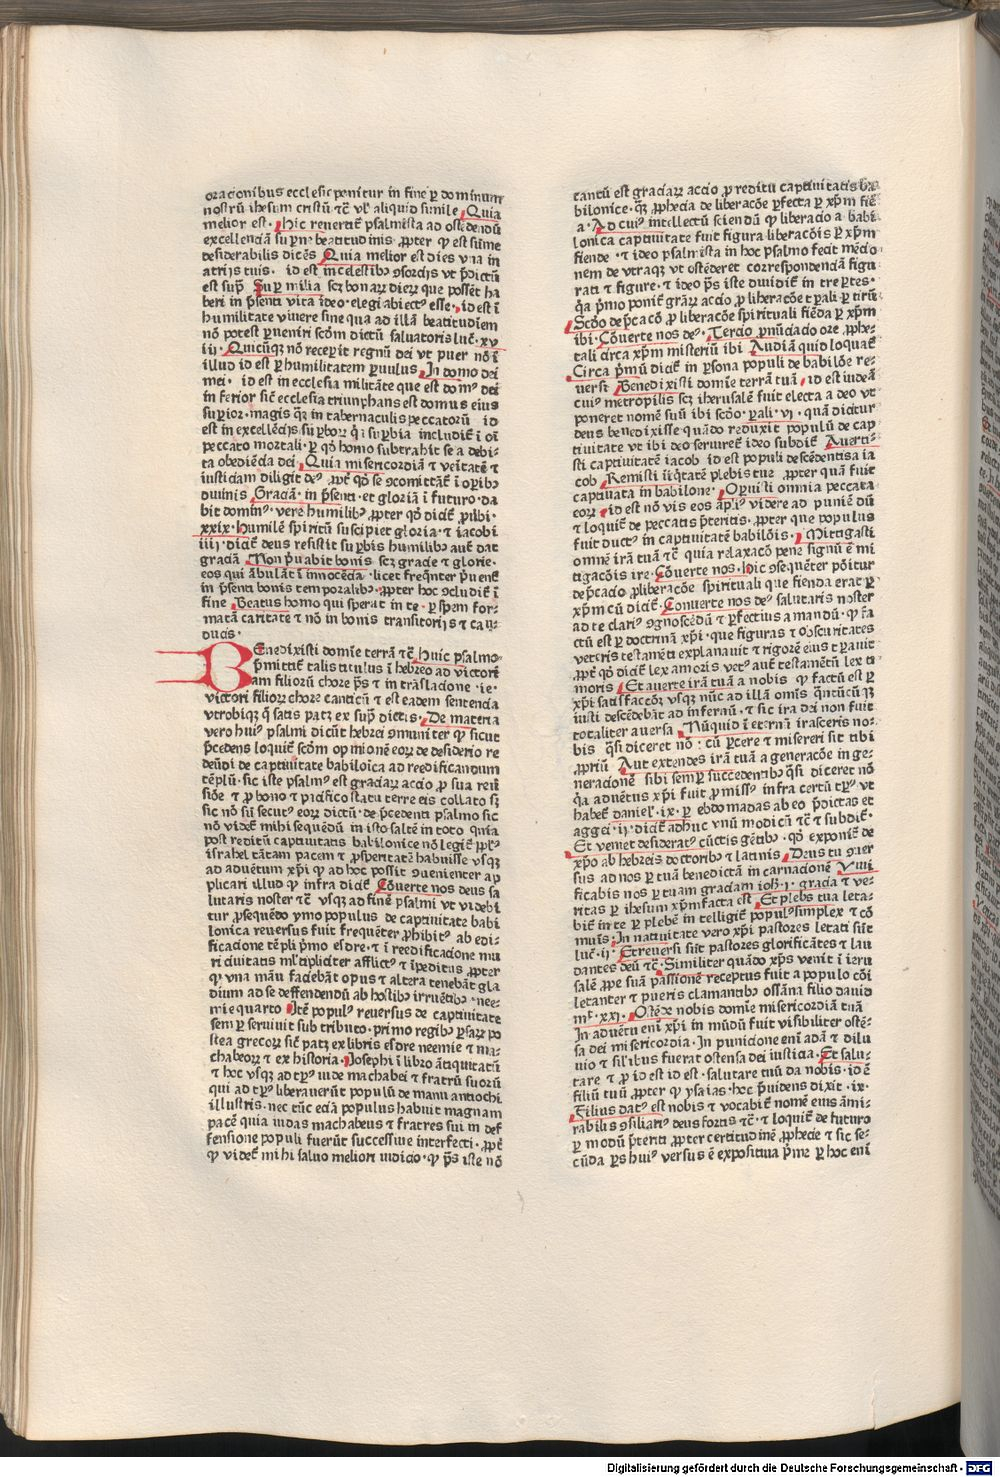 oracionibus ecclesie ponitur in fine ꝑ dominum
nostrū ihesum cristū ⁊c̄ vl' aliquid simile Quia
melior est · hic reuertit̄ psalmista ad ostēdendū
excellenciā sup̄ne beatitudinis ꝓpter qͥ est sūme
desiderabilis dicēs Quia melior est dies vna in
atrijs tuis · id est in celestibꝰ ꝯsorcijs vt p̄dictū
est sup̄ Suꝑ milia scꝫ bonaꝝ dieꝝ que possēt ha
beri in p̄senti vita ideo · elegi abiectꝰ esse · id est ī
humilitate viuere sine qua ad illā beatitudinem
nō potest ꝑueniri scd̄m dictū saluatoris luc̄ · xv
iii · Quicūqꝫ nō receperit regnū dei vt puer nō ī
illud id est ꝑ humilitatem ꝑuulus In domo dei
mei · id est in ecclesia militāte que est domꝰ dei
inferior sic̄ ecclesia triunphans est domus eius
superior · magis qͣꝫ in tabernaculis peccatorū id
est in excellēcijs suꝑboꝝ qͥ i suꝑbia includit̄ i oī
peccato mortali · ꝑ qd̄ homo subtrahit se a debi-
ta obediēcia dei Quia misericordiā ⁊ veritatē ⁊
iusticiam diligit deꝰ
diuinis Graciā · in p̄senti · et gloriā i futuro · da
bit dominꝰ · vere humilibꝰ ꝓpter qd̄ dicit̄ ꝓuerbi ·
xxix · humilē spiritū suscipiet gloria · ⁊ iacobi
iiij · dicit̄ deus resistit suꝑbis humilibꝰ aut̄ dat
graciā Non p̄uabit bonis scꝫ gracie ⁊ glorie ·
eos qui ābulāt ī innocēcia · licet freqn̄ter p̄uent̄
in p̄senti bonis temporalibꝰ · ꝓpter hoc ꝯcludit̄ ī
fine Beatus homo qui sperat in te · ꝑ spem for-
matā caritate ⁊ nō in bonis transitorijs ⁊ cadu-
cis ·
BEnedixisti domīe terrā ⁊c̄ Huic psalmo
p̄mittit̄ talis titulus ī hebreo ad victori
am filiorū chore p̄s ⁊ in trāslacione · ie ·
victori filioꝝ chore canticū ⁊ est eadem sentencia
vtrobiqꝫ qͥ satis patꝫ ex sup̄ dictis De materia
vero huiꝰ psalmi dicūt hebrei ꝯmuniter qͥ sicut
p̄cedens loquit̄ scd̄m opinionē eoꝝ de desiderio re
deūdi de captiuitate babiloica ad reedificandum
tēplū · sic iste psalmꝰ est graciaꝝ accio ꝓ sua remī
siōe ⁊ ꝓ bono ⁊ pacifico statu terre eis collato sꝫ
sic nō sū secutꝰ eoꝝ dictū · de p̄cedenti psalmo sic
nō videt̄ mihi sequēdū in isto saltē in toto quia
post reditū captiuitatis babilonice nō legit̄ ppl'm
israhel tātam pacem ⁊ ꝓsperitatē habuisse vsqꝫ
ad aduentum xp̄i qͥ ad hoc possit ꝯuenienter ap
plicari illud qd̄ infra dicit̄ Cōuerte nos deus sa
lutaris noster ⁊c̄ vsqꝫ ad finē psalmi vt videbi
tur ꝓsequēdo ymo populus de captiuitate babi
lonica reuersus fuit frequēter ꝓhibitꝰ ab edi-
ficacione tēpli p̄mo esdre · ⁊ ī reedificacione mu
ri ciuitatis ml'tipliciter afflictꝰ ⁊ īpeditus ꝓpter
qd̄ vna māu faciebāt opus ⁊ altera tenebāt gla
dium ad se deffendendū ab hostibꝰ irruētibꝰ · nee-
mie quarto Itē populꝰ reuersus de captiuitate
semꝑ seruiuit sub tributo · primo regibꝰ ꝑsaꝝ po
stea grecoꝝ sic̄ patꝫ ex libris esdre neemie ⁊ ma-
chabeoꝝ ⁊ ex historia Josephi ī libro ātiquitatū
⁊ hoc vsqꝫ ad tp̄ꝰ iude machabei ⁊ fratrū suorū
qui ad tp̄ꝰ liberauerūt populū de manu antiochi
illustris · nec tūc ecīa populus habuit magnam
pacē quia iudas machabeus ⁊ fratres sui in def
fensione populi fuerūt successiue interfecti · ꝓpt̄
qd̄ videt̄ mihi saluo meliori iudicio · qͥ p̄s iste nō
tantū est graciaꝝ accio ꝓ reditu captiuitatis ba
bilonice · qͣꝫ ꝓphecia de liberacōe ꝑfecta ꝑ xp̄m fiē
a · Ad cuiꝰ intellectū sciendū qͥ liberacio a babi
lonica captiuitate fuit figura liberacōis ꝑ xp̄m
fiende · ⁊ ideo psalmista in hoc psalmo fecit mēcio
nem de vtraqꝫ vt ostēderet correspondenciā figu
rati ⁊ figure · ⁊ ideo p̄s iste diuidit̄ in tres ꝑtes ·
qͣ p̄mo ponit̄ grāꝝ accio ꝓ liberacōe tꝑali ꝑ cirū
Scd̄o dep̄cacō ꝓ liberacōe spirituali fiēda ꝑ xp̄m
ibi · Cōuerte nos deꝰ · Tercio ꝓnūciacio oꝛe ꝓphe-
tali circa xp̄m misteriū ibi Audiā quid loquat̄
Circa p̄mū dicit̄ in ꝑsona populi de babilōe re-
uersi Benedixisti domīe terrā tuā id est iudeā
cuiꝰ metropolis scꝫ iherusalē fuit electa a deo vt
poneret nomē suū ibi scd̄o · ꝑali · vi · quā dicitur
deus benedixisse quādo reduxit populū de cap
tiuitate vt ibi deo seruiret̄ ideo subdit̄ Auerti-
sti captiuitatē iacob id est populi descēdentis a ia
cob Remisti iniqͥtatē plebis tue ꝓpter quā fuit
captiuata in babilone · Operuisti omnia peccata
eoꝝ id est nō vis eos ampliꝰ videre ad puniēdū
⁊ loquit̄ de peccatis p̄teritis · ꝓpter que populus
fuit ductꝰ in captiuitatē babilōis · Mitigasti
omnē irā tuā ⁊c̄ quia relaxacō pene signū ē mi
tigacōis ire · Cōuerte nos · hic ꝯsequēter pōitur
dep̄cacio ꝓ liberacōe spirituali que fienda erat ꝑ
xp̄m cū dicit̄ · Conuerte nos deꝰ salutaris noster
ad te clariꝰ ꝯgnoscēdū ⁊ ꝑfectius amandū · qd̄ fa
ctū est ꝑ doctrinā xp̄i · que figuras ⁊ obscuritates
veteris testamēti explanauit ⁊ rigorē eius tꝑauit
ꝓpt̄ qd̄ dicit̄ lex amoris vetꝰ aut̄ testamētū lex ti
moris Et auerte irā tuā a nobis qd̄ factū est ꝑ
xp̄i satisfaccōꝫ vsqꝫ nūc ad illā omīs qͣntūcūqꝫ
iusti descēdebāt ad infernū · ⁊ sic ira dei non fuit
totaliter auersa Nūquid ī eternū irasceris no-
bis qͣsi diceret nō : cū ꝑcere ⁊ misereri sit tibi
ꝓpriū Aut extendes irā tuā a generacōe in ge-
neracionē sibi semꝑ succedentibꝰ qͣsi diceret nō
qͣ aduētus xp̄i fuit ꝓmissꝰ infra certū tp̄ꝰ vt
habet̄ daniel' · ix · ꝑ ebdomadas ab eo p̄dictas et
aggei · ij · dicit̄ adhuc vnū modicū ⁊c̄ ⁊ subdit̄ ·
Et veniet desideratꝰ cūctis gētibꝰ · qd̄ exponit̄ de
xp̄o ab hebreis doctoribꝰ ⁊ latinis Deus tu ꝯuer
sus ad nos ꝑ tuā benedictā incarnacionē Viui
ficabis nos ꝑ tuam graciam ioh̄ · i · gracia ⁊ ve-
ritas ꝑ ihesum xp̄m facta est Et plebs tua leta-
bit̄ in te ꝑ plebē intelligit̄ populꝰ simplex ⁊ cō
muīs : In natiuitate vero xp̄i pastores letati sūt
luc̄ · ij · Et reuersi sūt pastores glorificātes ⁊ lau
dantes deū ⁊c̄ · Similiter quādo xp̄s venit ī ieru
salē ꝓpe suā passionē receptus fuit a populo cōi
letanter ⁊ pueris clamantibꝰ ossāna filio dauid
mt̄ · xxi · Ostēde nobis domīe misericordiā tuā
In aduētu enī xp̄i in mūdū fuit visibiliter ostē-
sa dei misericordia · In punicione enī adā ⁊ dilu
uio ⁊ sil'ibus fuerat ostensa dei iusticia · Et salu-
tare ⁊ ꝓ id est id est · salutare tuū da nobis · id ē
filiū tuū ꝓpter qd̄ ysaias · hoc p̄uidens dixit · ix ·
Filius datꝰ est nobis ⁊ vocabit̄ nomē eius ami-
rabilis ꝯsiliariꝰ deus fortis ⁊c̄ · ⁊ loquit̄ de futuro
ꝑ modū p̄teriti ꝓpter certitudinē ꝓphecie ⁊ sic se-
cūda ꝑs huiꝰ versus ē expositiua p̄me ꝑ hoc enī
Digitalisierung gefördert durch die Deutsche Forschungsgemeinschaft - DFG